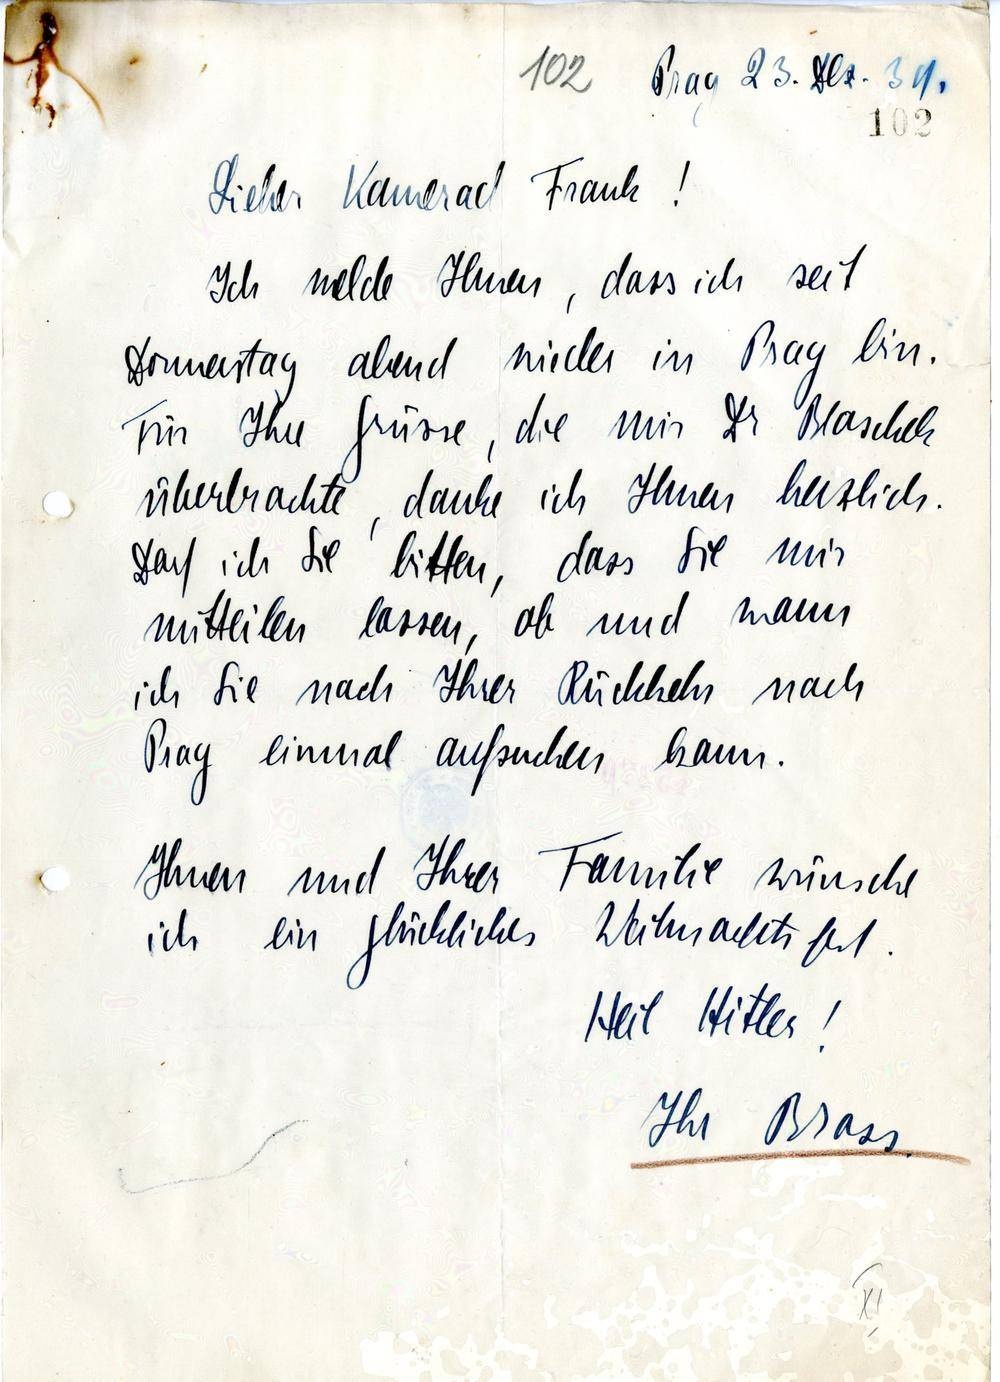 102 Prag 23. Dez. 39.
102
Lieber Kamerad Frank !
Ich melde Ihnen, dass ich seit
Donnerstag abend wieder in Prag bin.
Für Ihre Grüsse, die mir Dr Blaschek
überbrachte, danke ich Ihnen herzlich.
Darf ich Sie bitten, dass Sie mir
mitteilen lassen, ob und wann
ich Sie nach Ihrer Rückkehr nach
Prag einmal aufsuchen kann.
Ihnen und Ihrer Familie wünsche
ich ein glückliches Weihnachtsfest.
Heil Hitler !
Ihr Brass.
XI